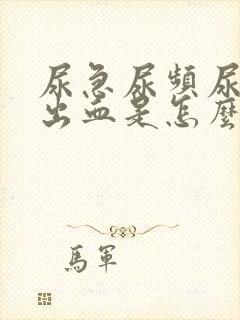 尿急尿頻尿
出血是怎麼
馬軍